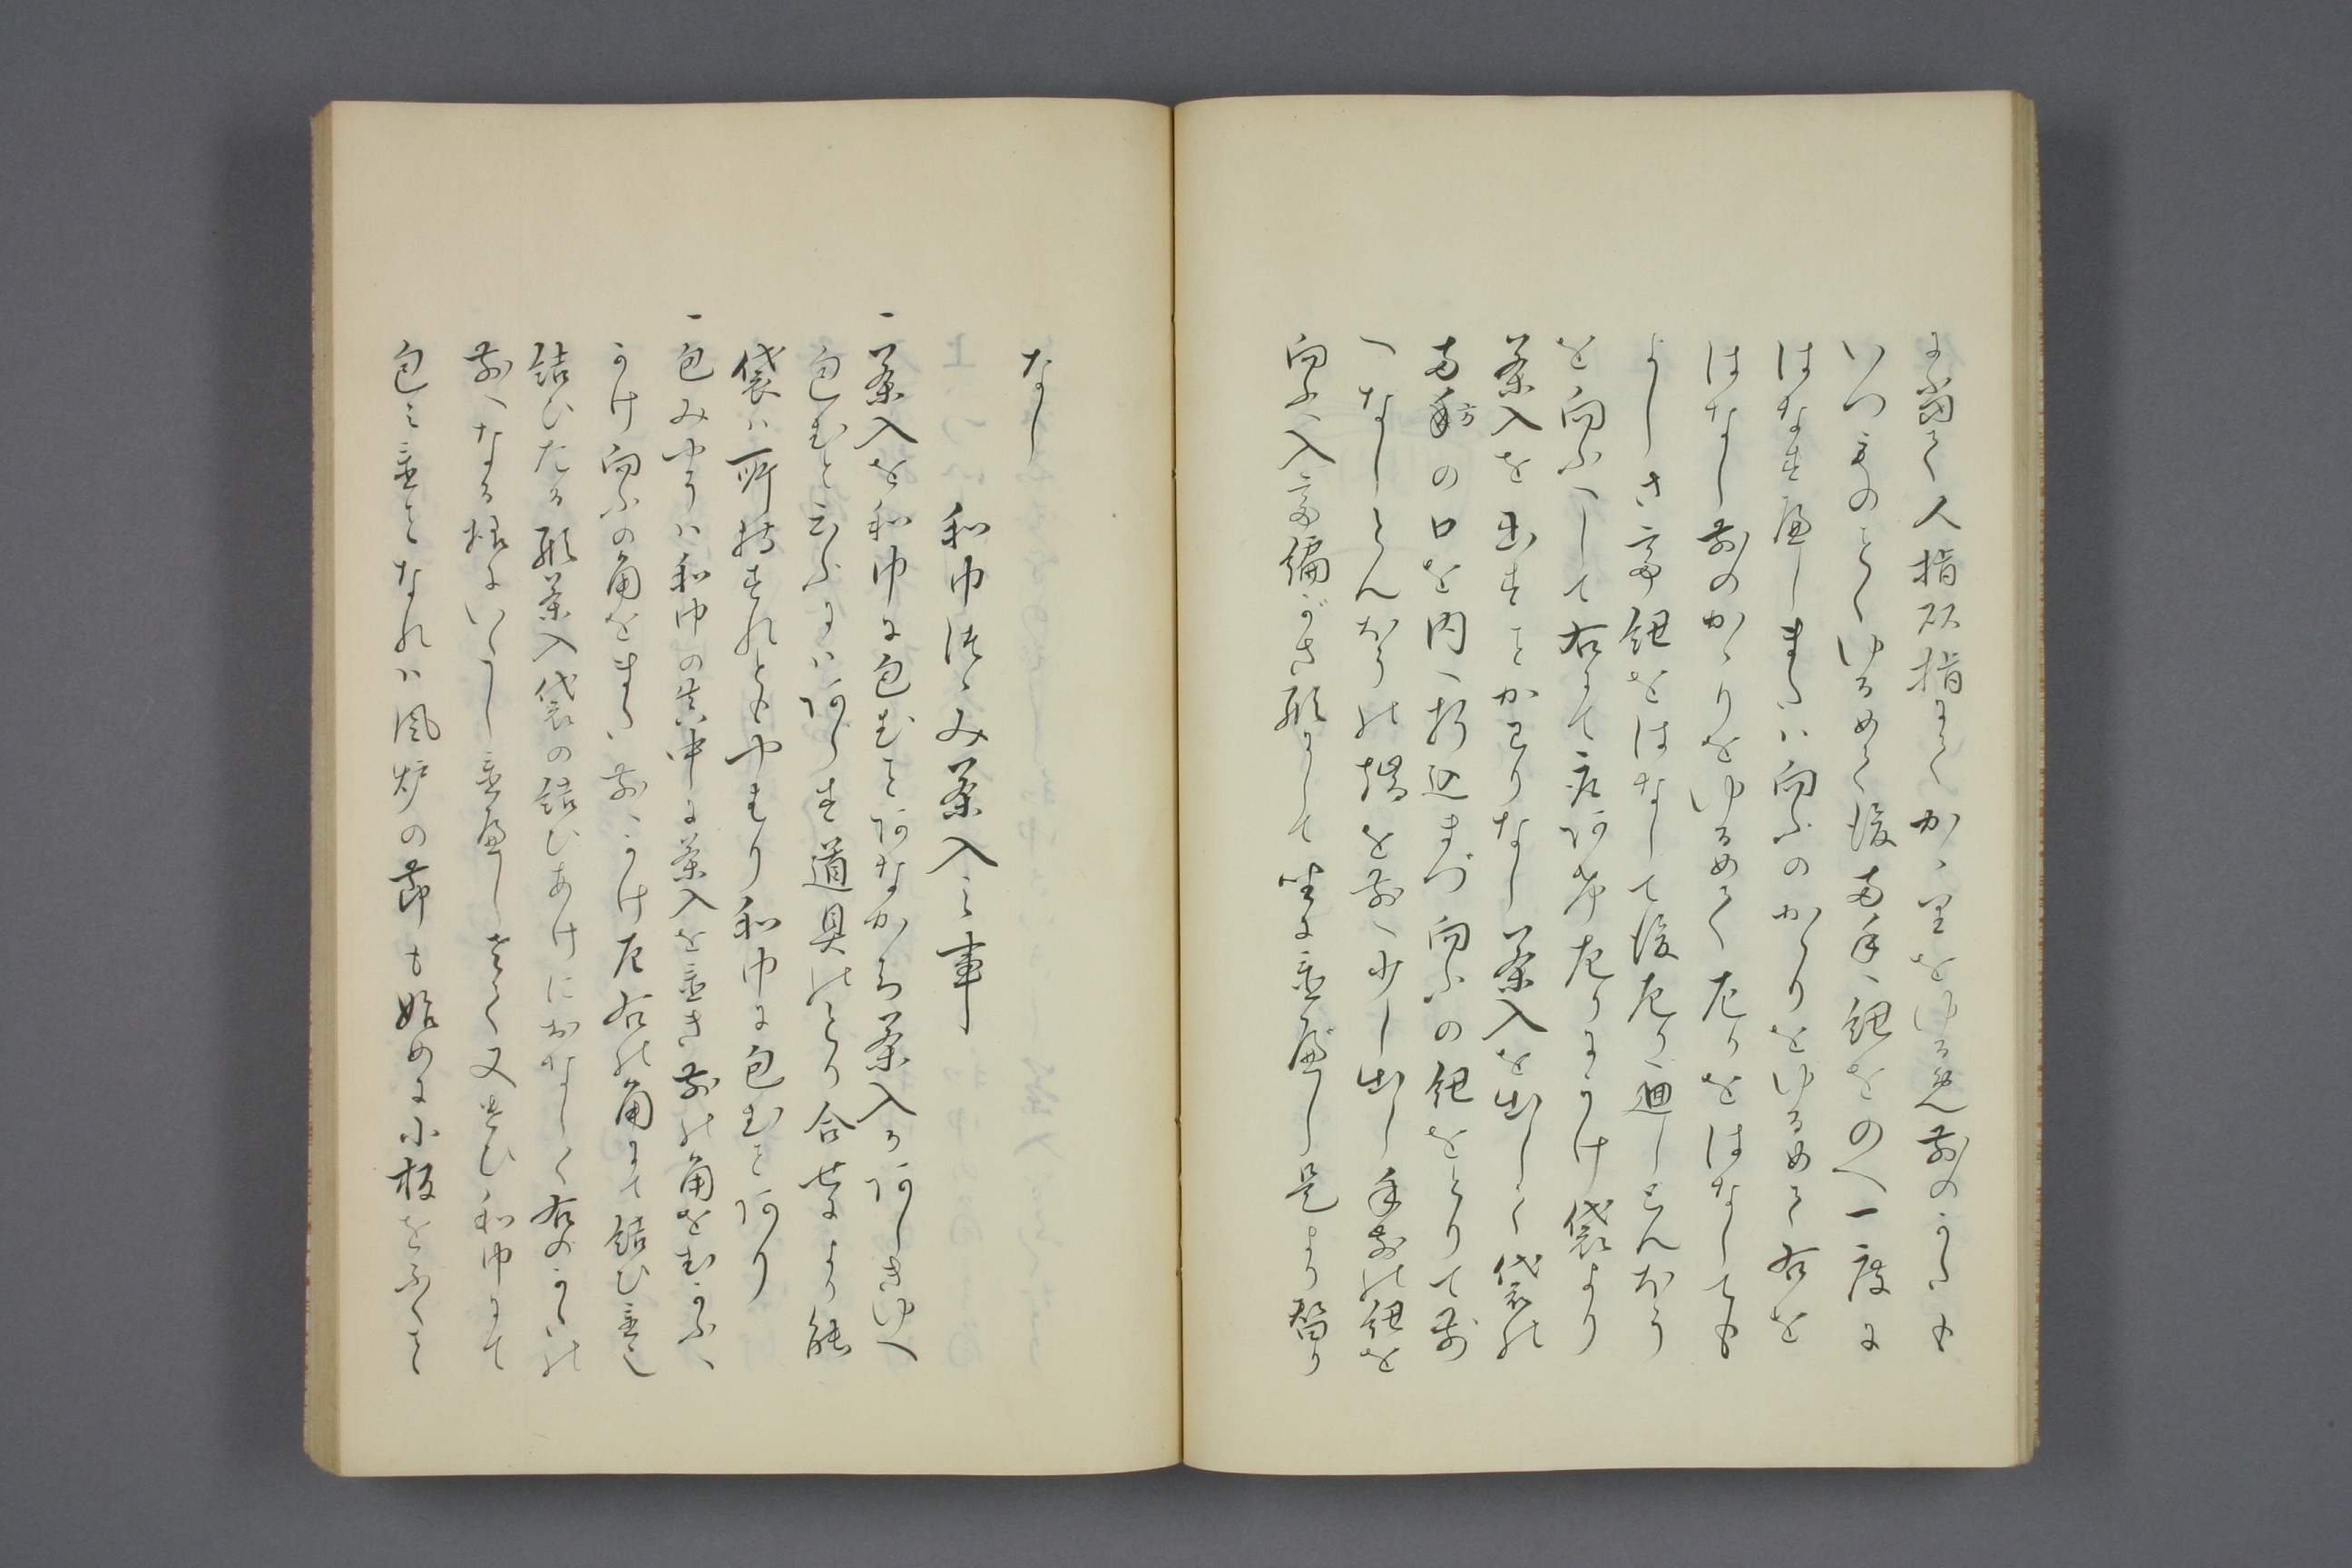 に当て人指砍指にてかゝりをゆるめ前のかたも
いつものことくゆるめて後両手へ紐をのへ一度に
はなすへしまたハ向ふのかゝりをゆるめて右を
はなし前のかゝりをゆるめて左りをはなしても
よしさて紐をはなして後左りへ廻しとんおう
を向ふへして右にて左りにうけ袋より
茶入を出すことかわりなし茶入を出して袋の
両方の口を内へ折込まづ向ふの紐をとりて前
へなしとんおうの端を前へ少し出し手前の紐を
向ふへ入て編かさ形にして置へし是より替り
なし
和巾つゝみ茶入之事
一茶入を和巾に包むことあなかち茶入かあしきゆへ
包むと云ふにハあらす道具のとり合せにより能
袋ハ所持すれともやはり和巾に包むことあり
一包みやうハ和巾の真中に茶入を置き前の角をむかふへ
うけ向ふの角をまた前へうけ左右の角にて結ひ置也
結ひたる形茶入袋の結ひあけにおなしく右のかたの
前へなる様にいたし置へしさて又すむ和巾にて
包ミ置ことなれハ風炉の節も始めに小板をふくこと